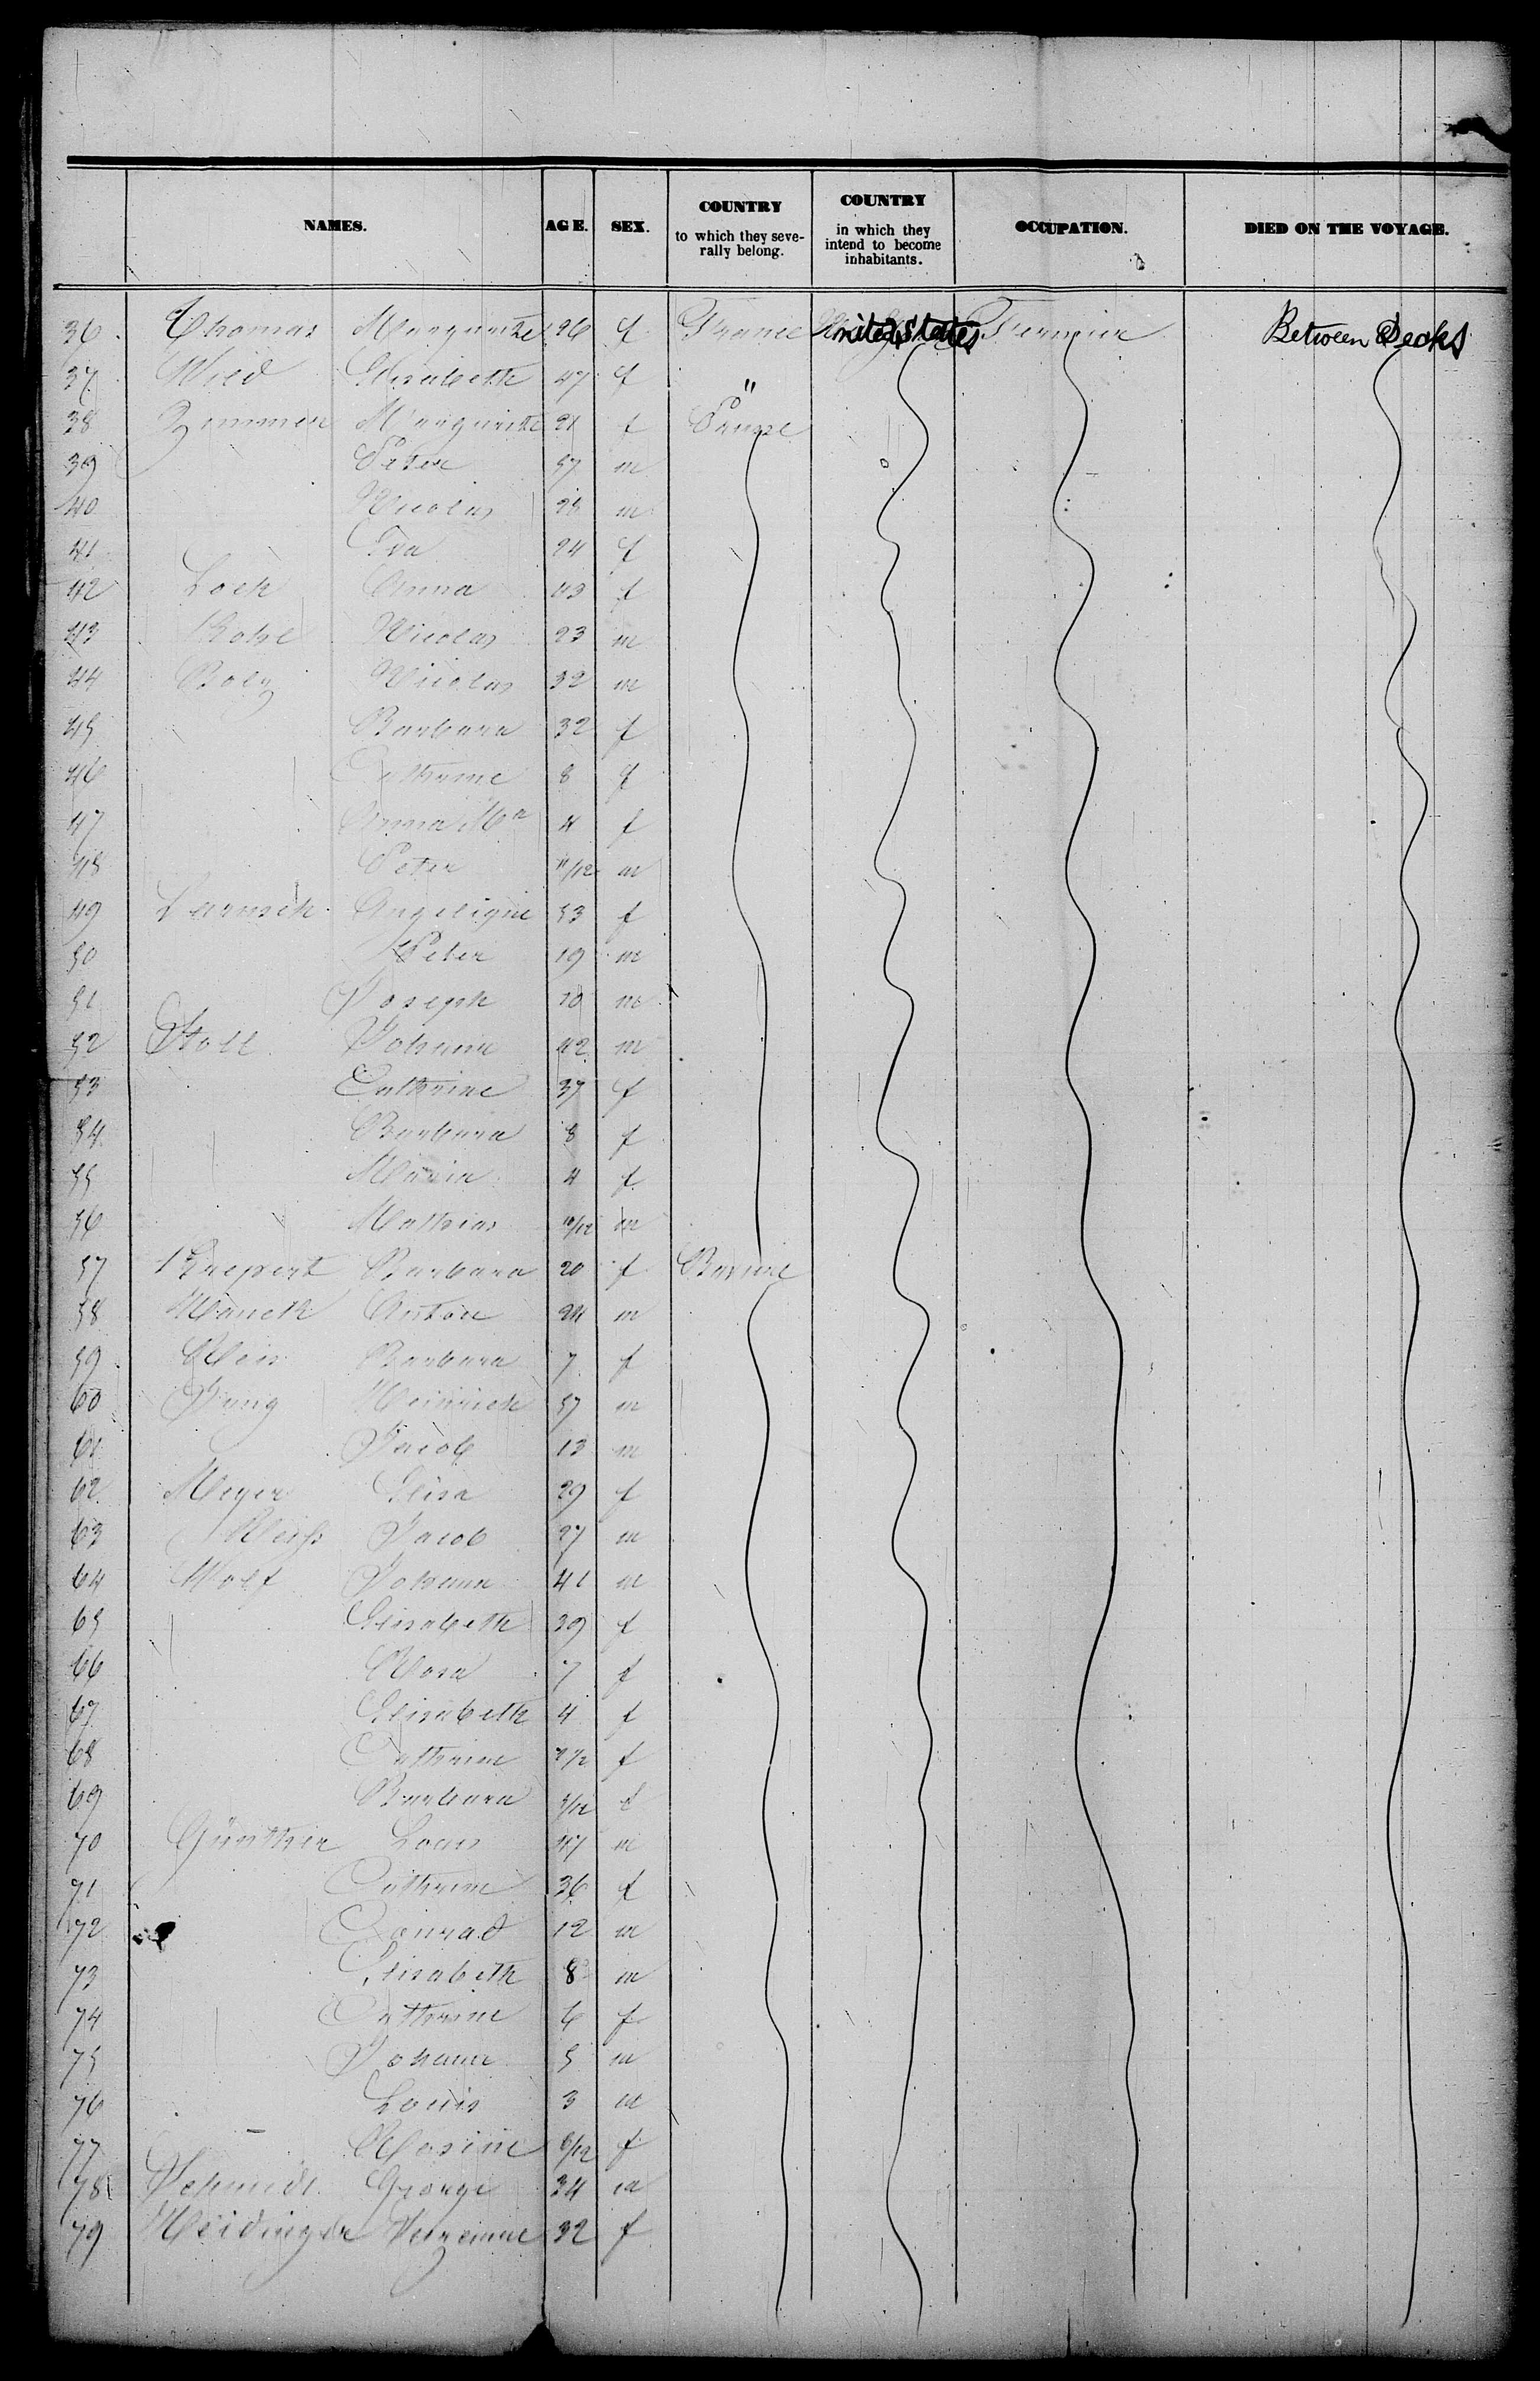 NAMES. AGE. SEX. COUNTRY to which they severally belong. COUNTRY in which they intend to become inhabitants. OCCUPATION. DIED ON THE VOYAGE.
36 Thomas Marguerithe 26 f France United States Between Decks
37 Wild Elisabeth 47 f "
38 Zimmer Marguerithe 21 f
39 Peter 57 m
40 Nicolas 28 m
41 Eva 24 f
42 Loch Anna 43 f
43 Kohl Nicolas 23 m
44 Nicolas 32 m
45 Barbara 32 f
46 Cathrine 8 f
47 Anna Ma 4 f
48 Peter 11/12 m
49 Angelique 53 f
50 Peter 19 m
51 Joseph 10 m
52 Stoll Johann 42 m
53 Cathrine 37 f
54 Barbara 8 f
55 Maria 4 f
56 Mathias 10/12 m
57 Barbara 20 f
58 Anton 24 m
59 Barbara 7 f
60 Jung Heinrich 57 m
61 Jacob 13 m
62 Meyer Elisa 29 f
63 Jacob 27 m
64 Wolf Johann 41 m
65 Elisabeth 39 f
66 7 f
67 Elisabeth 4 f
68 Cathrine f
69 Barbara f
70 Günther Louis 47 m
71 Cathrine 36 f
72 Conrad 12 m
73 Elisabeth 8 m
74 Cathrine 6 f
75 Johann 5 m
76 Louis 3 m
77 6/12 f
78 Schmidt George 34 m
79 Meidinger 32 f